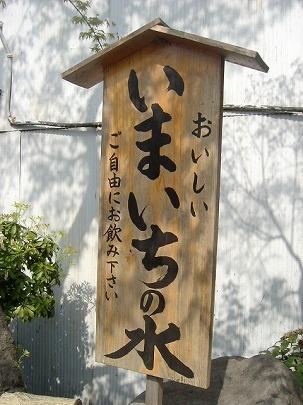 おいしい
いまいちの水
ご自由にお飲み下さい